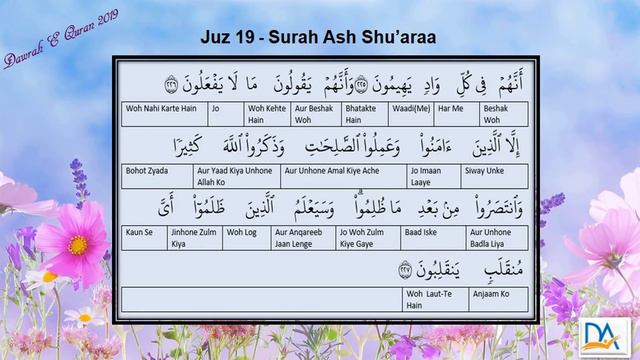 Dawrah E Quran 2019
Juz 19 - Surah Ash Shu’araa
أَنَّهُمْ فِى كُلِّ وَادٍ يَهِيمُونَ ﴿٢٢٥﴾ وَأَنَّهُمْ يَقُولُونَ مَا لَا يَفْعَلُونَ ﴿٢٢٦﴾
Beshak Woh | Har Me | Waadi(Me) | Bhatakte Hain | Aur Beshak Woh | Woh Kehte Hain | Jo | Woh Nahi Karte Hain
إِلَّا ٱلَّذِينَ ءَامَنُوا۟ وَعَمِلُوا۟ ٱلصَّٰلِحَٰتِ وَذَكَرُوا۟ ٱللَّهَ كَثِيرًا
Siway Unke | Jo Imaan Laaye | Aur Unhone Amal Kiye Ache | Aur Yaad Kiya Unhone Allah Ko | Bohot Zyada
وَٱنتَصَرُوا۟ مِنۢ بَعْدِ مَا ظُلِمُوا۟ ۗ وَسَيَعْلَمُ ٱلَّذِينَ ظَلَمُوٓا۟ أَىَّ
Aur Unhone Badla Liya | Baad Iske | Jo Woh Zulm Kiye Gaye | Aur Anqareeb Jaan Lenge | Woh Log | Jinhone Zulm Kiya | Kaun Se
مُنقَلَبٍ يَنقَلِبُونَ ﴿٢٢٧﴾
Anjaam Ko | Woh Laut-Te Hain
DA